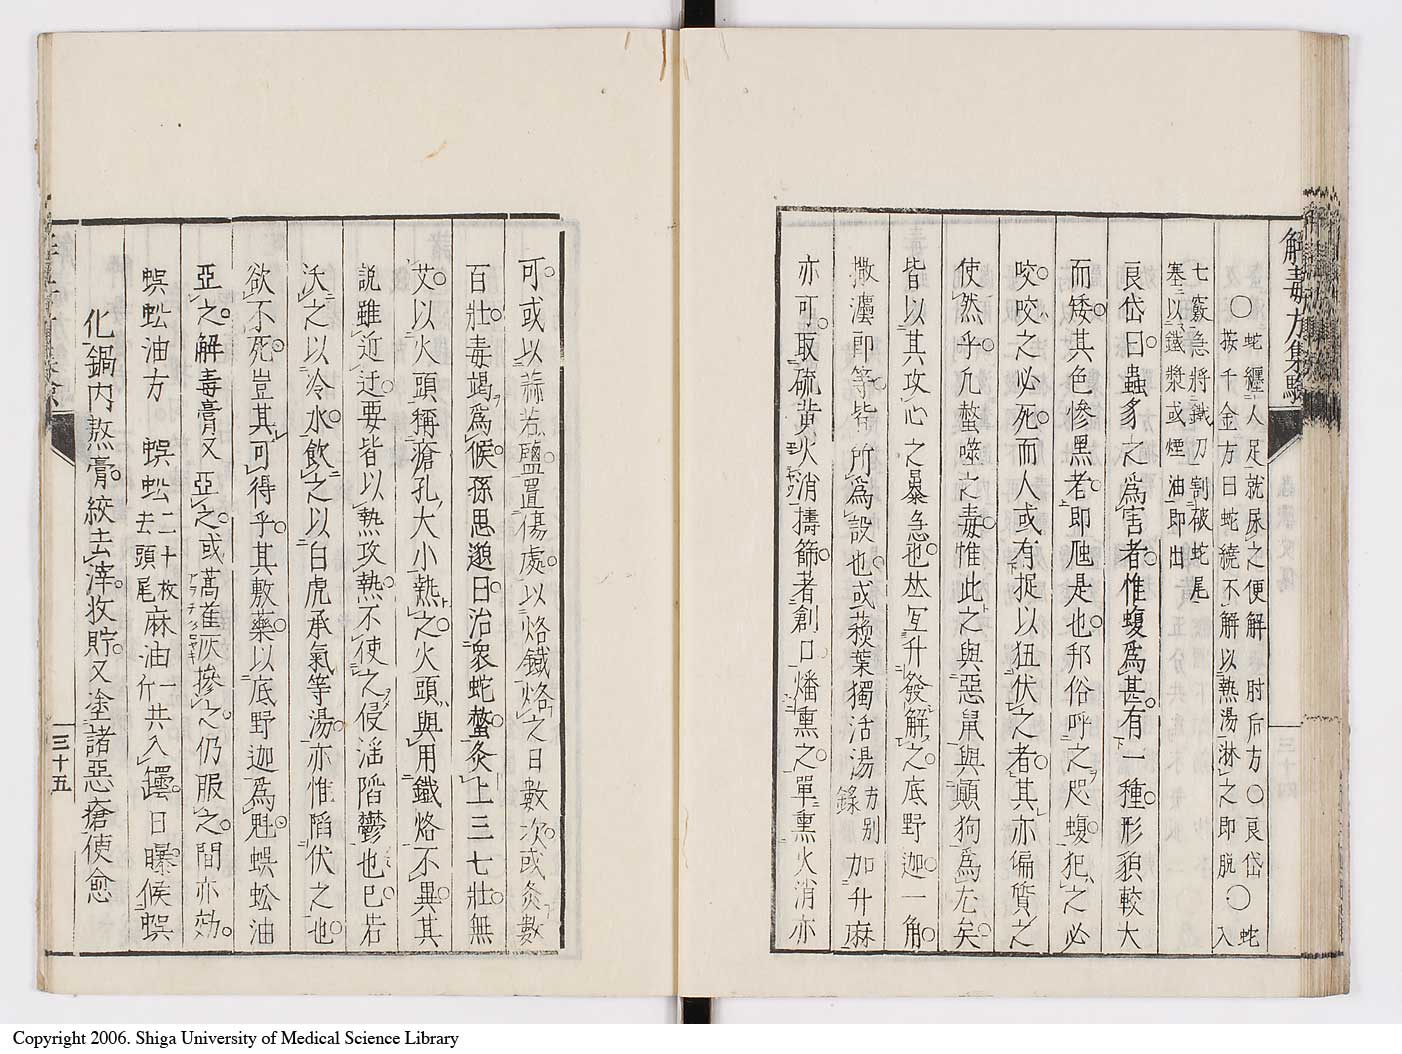 解毒方集驗
○蛇纏人足就尿之便解肘后方○良岱○蛇入
按千金方曰蛇繞不解以熱湯淋之即脱
七竅急將鐵刀割破蛇尾
塞以鐵漿或煙油即出
良岱曰蟲豸之爲害者惟蝮爲甚有一種形貌較大
而矮其色慘黑者即虺是也邦俗呼之咫蝮犯之必
咬咬之必死而人或有捉以狃伏之者其亦偏質之
使然乎凢螫噬之毒惟此之與惡鼠與顚狗爲尤矣
皆以其攻心之暴急也㠪亙升發解之底野迦一角
撒灋即等皆所爲設也或蒺葉獨活湯方別錄加升麻
亦可取硫黄火消擣篩者創口燔熏之單熏火消亦
可或以蒜若鹽置傷處以烙鐵烙之日數次或灸數
百壯毒竭爲候孫思邈曰治衆蛇螫灸上三七壯無
艾以火頭稱瘡孔大小熱之火頭與用鐵烙不異其
説雖近迂要皆以熱攻熱不使之侵淫陷鬱也已若
沃之以冷水飲之以白虎承氣等湯亦惟陷伏之也
欲不死豈其可得乎其敷藥以底野迦爲魁蜈蚣油
亞之解毒膏又亞之或蒿雀灰摻之仍服之間亦効
蜈蚣油方 蜈蚣二十枚去頭尾麻油一斤共入罎日曝候蜈
化鍋内熬膏絞去滓收貯又塗諸惡瘡使愈
三十五
Copyright 2006. Shiga University of Medical Science Library